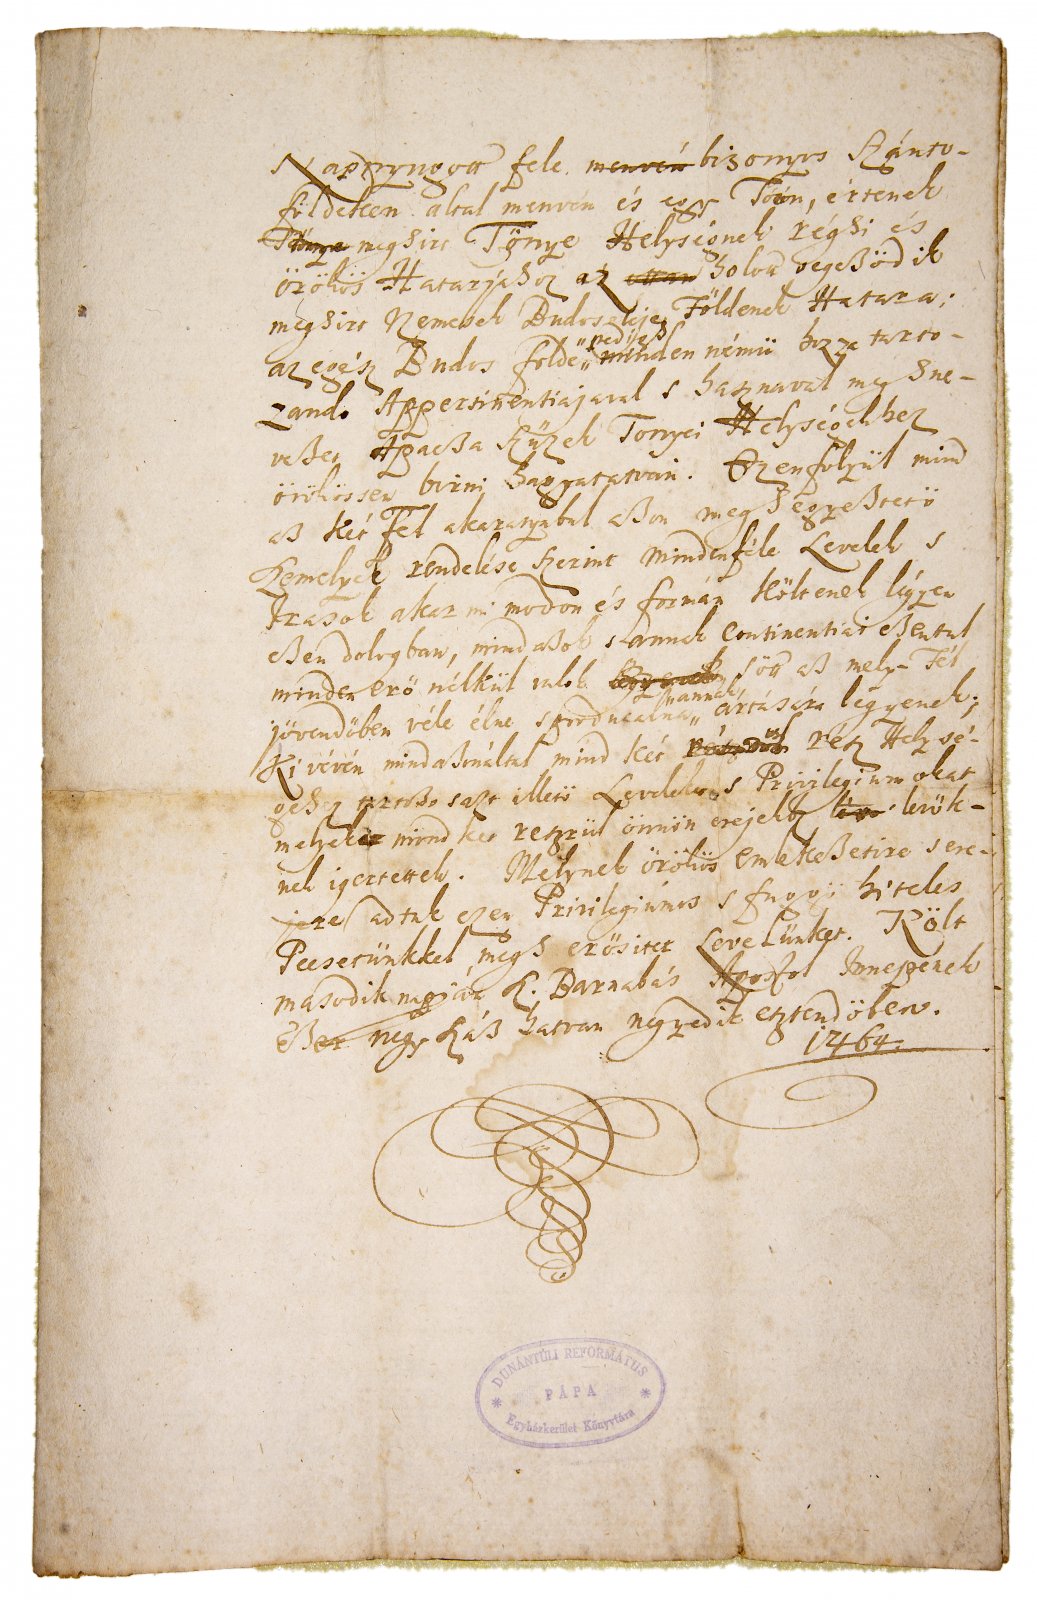 Nappyugott fele menvén bizonyos Szánto-
földeken által menvén és egy Toön, értenek
Tönye meghirt Tönye Helységnek réghi és
örökös Hatarjahoz az ottan holott vegeßödik
meghirt Nemesek Budos eleje Földenek Hatara;
az egész Budos földe pedigh minden némü hozza tarto-
zando Appertinentiajaval s hasznaval megh ne-
veßet Apacßa Szüzek Tonyei Helységekhez
örökössen birni hagyatatván. Ezenfölyül mind
aß két Fél akarattyabul aßon megh egyeßtetö
Szemelyek rendelése szerint mindenféle Levelek s
Irasok akar mi modon és formán költenek légyen
eßen dologban, mind aßok s annak continentiai eßentul
minden erö nélkül valok légyenek söt aß mely Fél
jövendöben véle élne s producalna annak ártására légyenek;
Ki vévén mind aßonáltal mind két részröl résß Helysé-
gehez tartoßo sazt illetö Leveleket s Privilegiumokat
melyeket mind két részrül önnön erejekbe lévö lenök-
nek igertettek. Melynek örökös emlekeßetire s ere-
jere adtuk ezen Privilegiumos s fuggö hiteles
Pecsetünkkel megh erösitet Levelünket. Költ
masodik napján Sz. Barnabás Apostol Innepenek
Eßer negy száß hatvan negyedik esztendöben.
1464.
DUNÁNTÚLI REFORMÁTUS
PÁPA
Egyházkerület Könyvtára